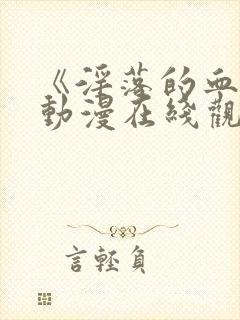 《淫落的血
動漫在綫觀
言輕負